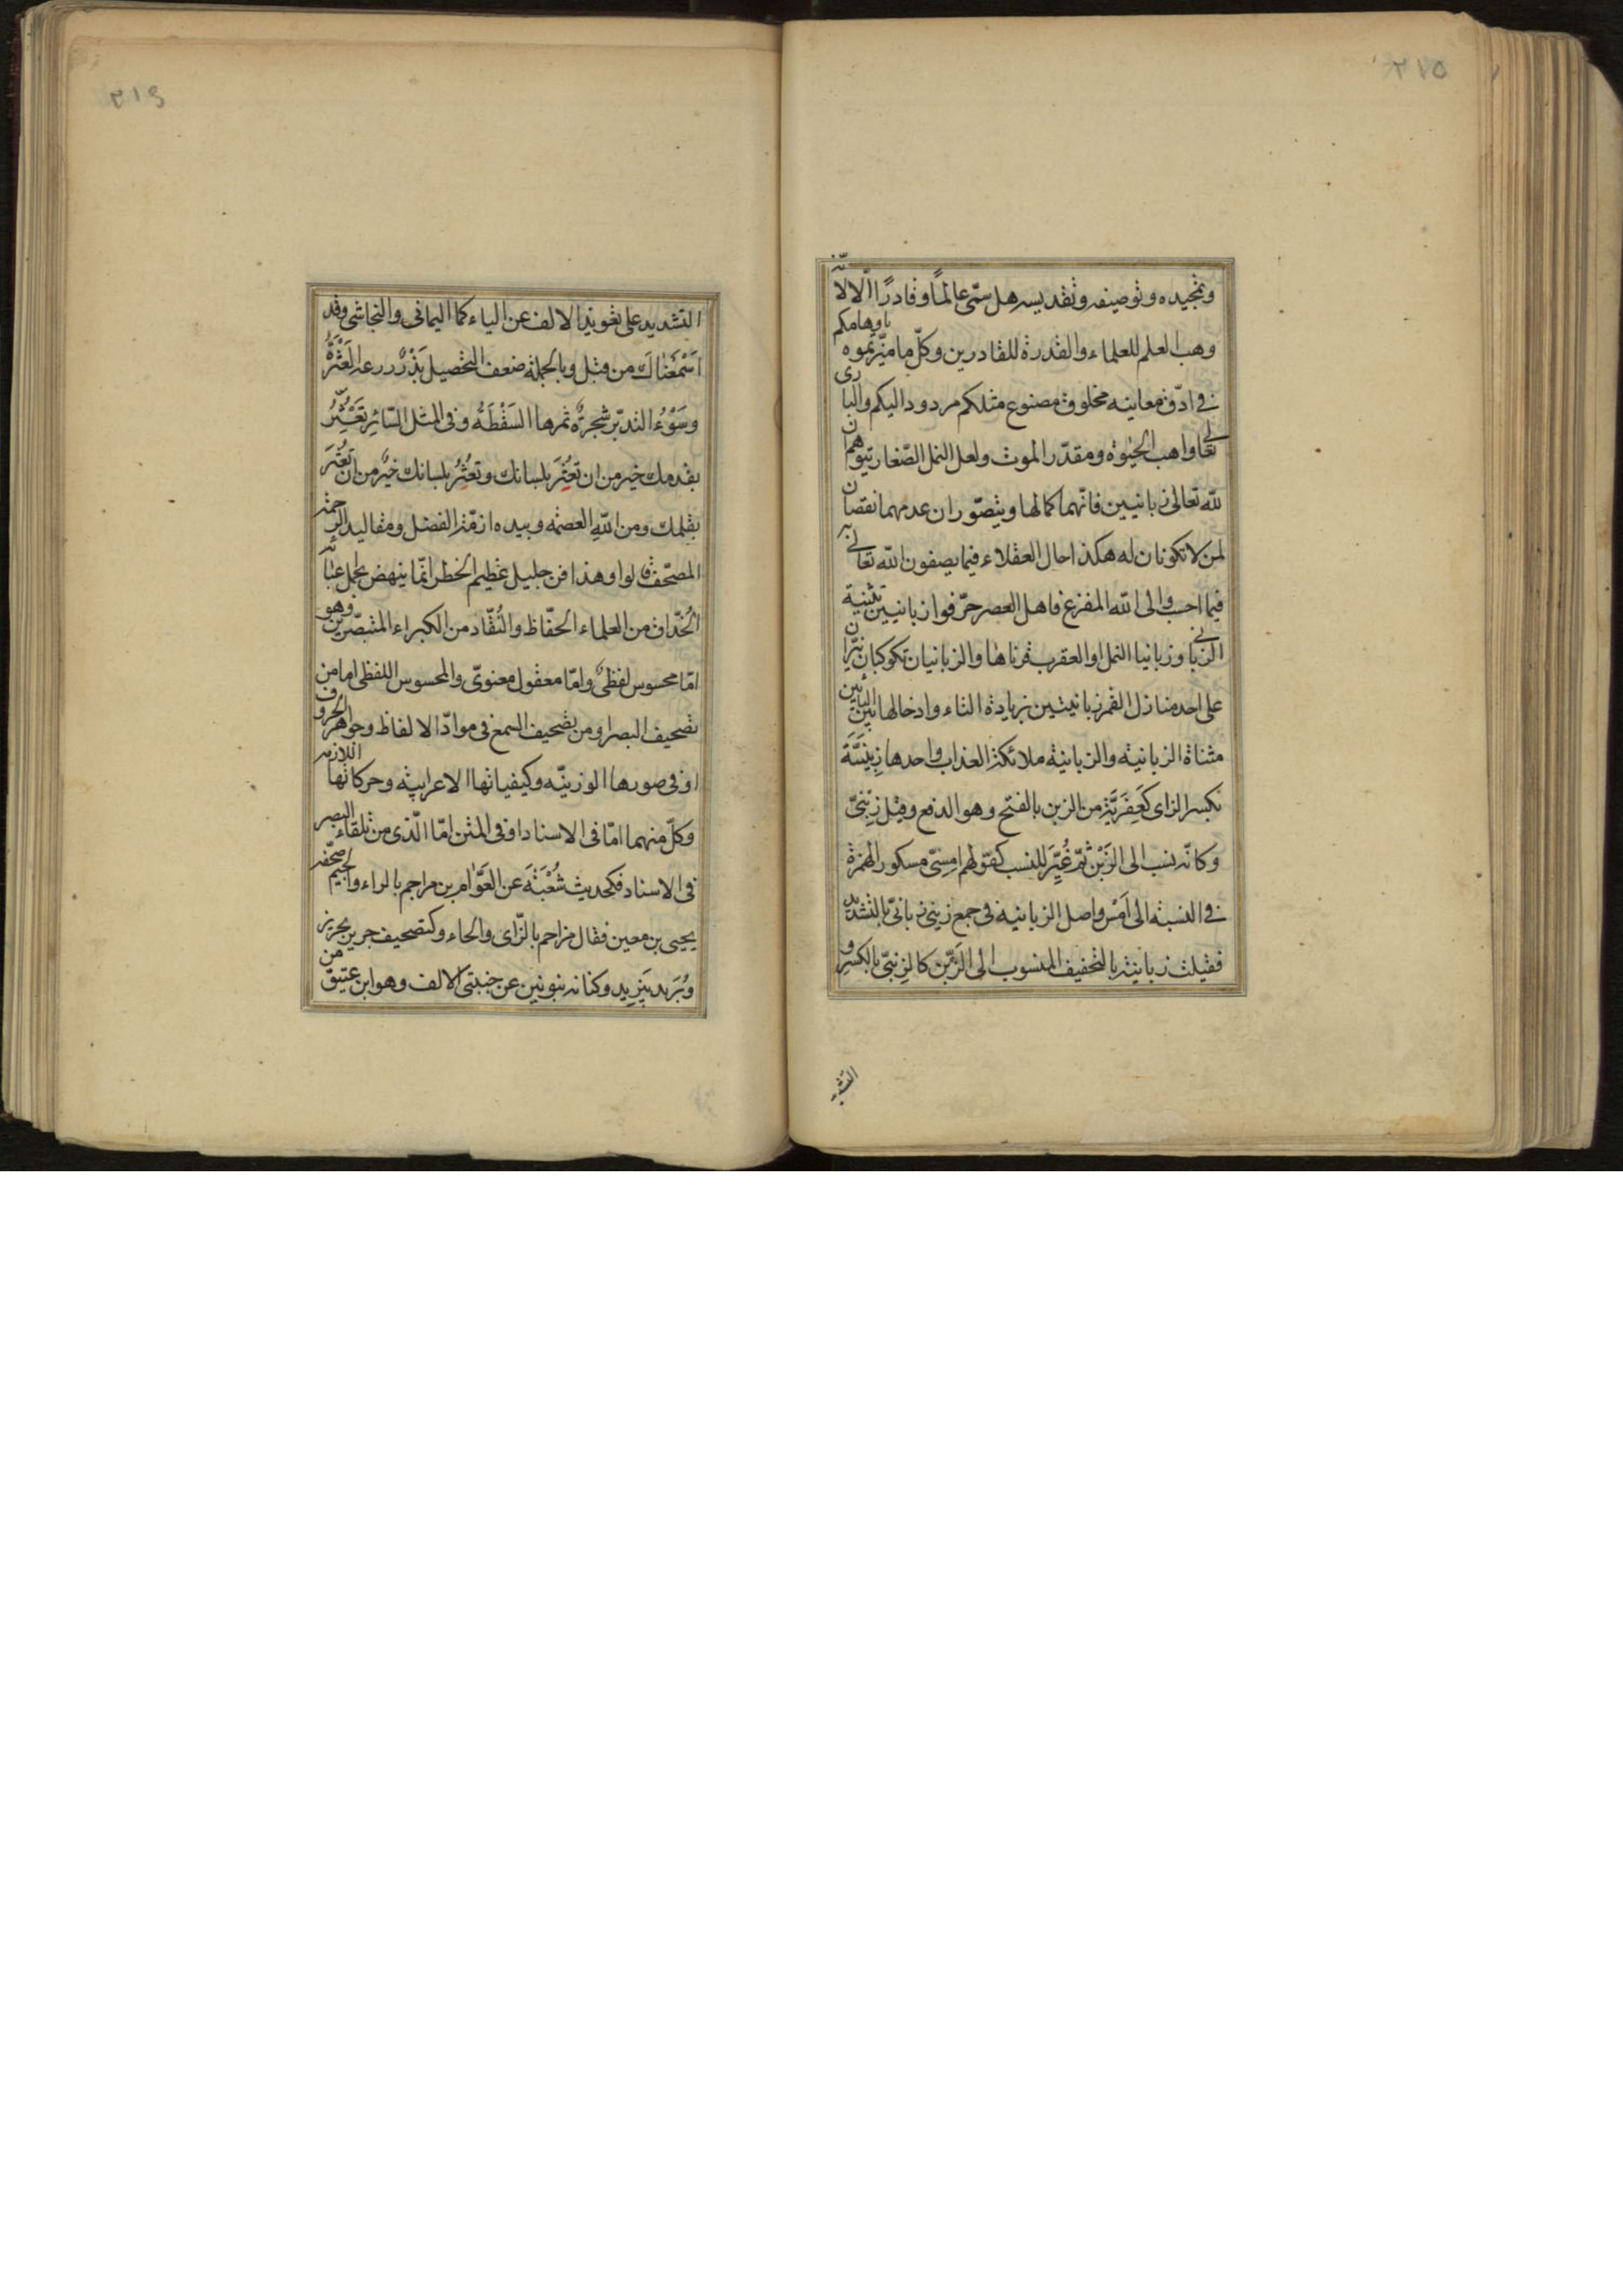 ٢١٥
وتمجيده وتوصيفه وتقديسه هل سمّى عالمًا وقادرًا الّا لانّه
وهب العلم للعلماء والقدرة للقادرين وكلّ ما ميّزتموه باوهامكم
في ادقّ معانيه مخلوق مصنوع مثلكم مردود اليكم والبارى
تعالى واهب الحيوة ومقدّر الموت ولعل النمل الصّغار يتوهم ان
لله تعالى زبانيين فانّهما كمالها ويتصوّر ان عدمهما نقصان
لمن لا تكونان له هكذا حال العقلاء فيما يصفون الله تعالى به
فيما احسب والى الله المفزع فاهل العصر حرّفوا زبانيين تثنية
الزبانى وزبانيا النمل او العقرب قرناها والزبانيان كوكبان نيّران
على احد منازل القمر زبانيتين بزيادة التاء وادخالها بين اليائين
مثناة الزبانية والزبانية ملائكة العذاب واحدها زِبْنِيَة
بكسر الزاى كعِفْرِيَة من الزبن بالفتح وهو الدفع وقيل زِبْنىّ
وكانّه نسب الى الزَبْن ثمّ غُيِّرَ للنسب كقولهم اِمسىّ مسكور الهمزة
في النسبة الى اَمْسِ واصل الزبانية فى جمع زبنى زبانىّ بالتشديد
فقيلت زبانية بالتخفيف المنسوب الى الزَبْن كالزبنىّ بالكسر و
التشديد
٢١٦
التشديد على تعويذ الالف عن الياء كما اليمانى والنجاشى وقد
اَسْمَعْناكَ من قبل وبالجملة ضعف التحصيل بَذْرٌ زرعه العَثْرَةُ
وسَوْءُ التدبّر شجرةٌ ثمرها السَقْطَةُ وفى المثل السّائر تَعَثُّرُ
بقدمك خير من ان تعثُرَ بلسانك وتعثُرُ بلسانك خيرٌ من ان تعثُرَ
بقلمك ومن الله العصمة وبيده ازمّة الفضل ومقاليد الرحمة
المصحّف قالوا وهذا فن جليل عظيم الخطر انّما ينهض بحمل عبائه
الحُذّاق من العلماء الحفّاظ والنُقّاد من الكبراء المتبصّرين وهو
امّا محسوس لفظىٌ وامّا معقول معنوىّ والمحسوس اللفظى اما من
تصحيف البصر او من تصحيف السمع فى موادّ الالفاظ وجواهر الحروف
او فى صورها الوزنيّه وكيفياتها الاعرابيّه وحركاتها اللازمه
وكلّ منهما امّا فى الاسناد او فى المتن امّا الّذى من تلقاء البصر
فى الاسناد فكحديث شُعْبَةَ عن العَوّام بن مراجم بالراء والجيم صحّفه
يحيى بن معين فقال مزاحم بالزّاى والحاء وكتصحيف جرير بحريز
وبُرَيد بيَزيد وكنانه بنونين عن جنبتى الالف وهو ابن عتيق من